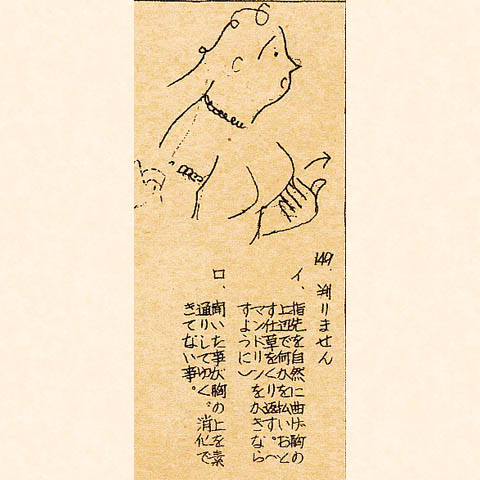 149. 判りません
イ、指先を自然に曲げ胸の
上辺で何かを払いおと
す仕草をくり返す。（
マンドリンをかきなら
すように）
ロ、聞いた事が胸の上を素
通りしてゆく。消化で
きてない事。